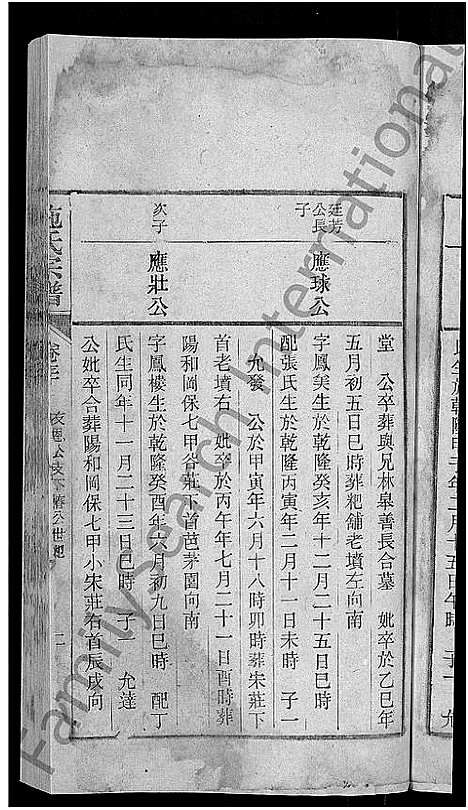 氏生於乾隆
子一
堂　公卒葬與兄林皋善長合墓　妣卒於乙巳年
五月初五日巳時葬粑舖老墳左向南
廷芳公長子
應球公
字鳳美生於乾隆癸亥年十二月二十五日巳時
配張氏生於乾隆丙寅年二月十一日未時　子一
允發　公於甲寅年六月十八時卯時葬宋莊下
首老墳右　妣卒於丙午年七月二十一日酉時葬
陽和岡保七甲谷莊下首芭茅園向南
次子
應壯公
字鳳樓生於乾隆癸酉年六月初九日巳時　配丁
氏生同年十一月二十三日巳時　子一　允達
公妣卒合葬陽和岡保七甲小宋莊右首辰戌向
施氏宗譜
公世紀
二
FamilySearch International